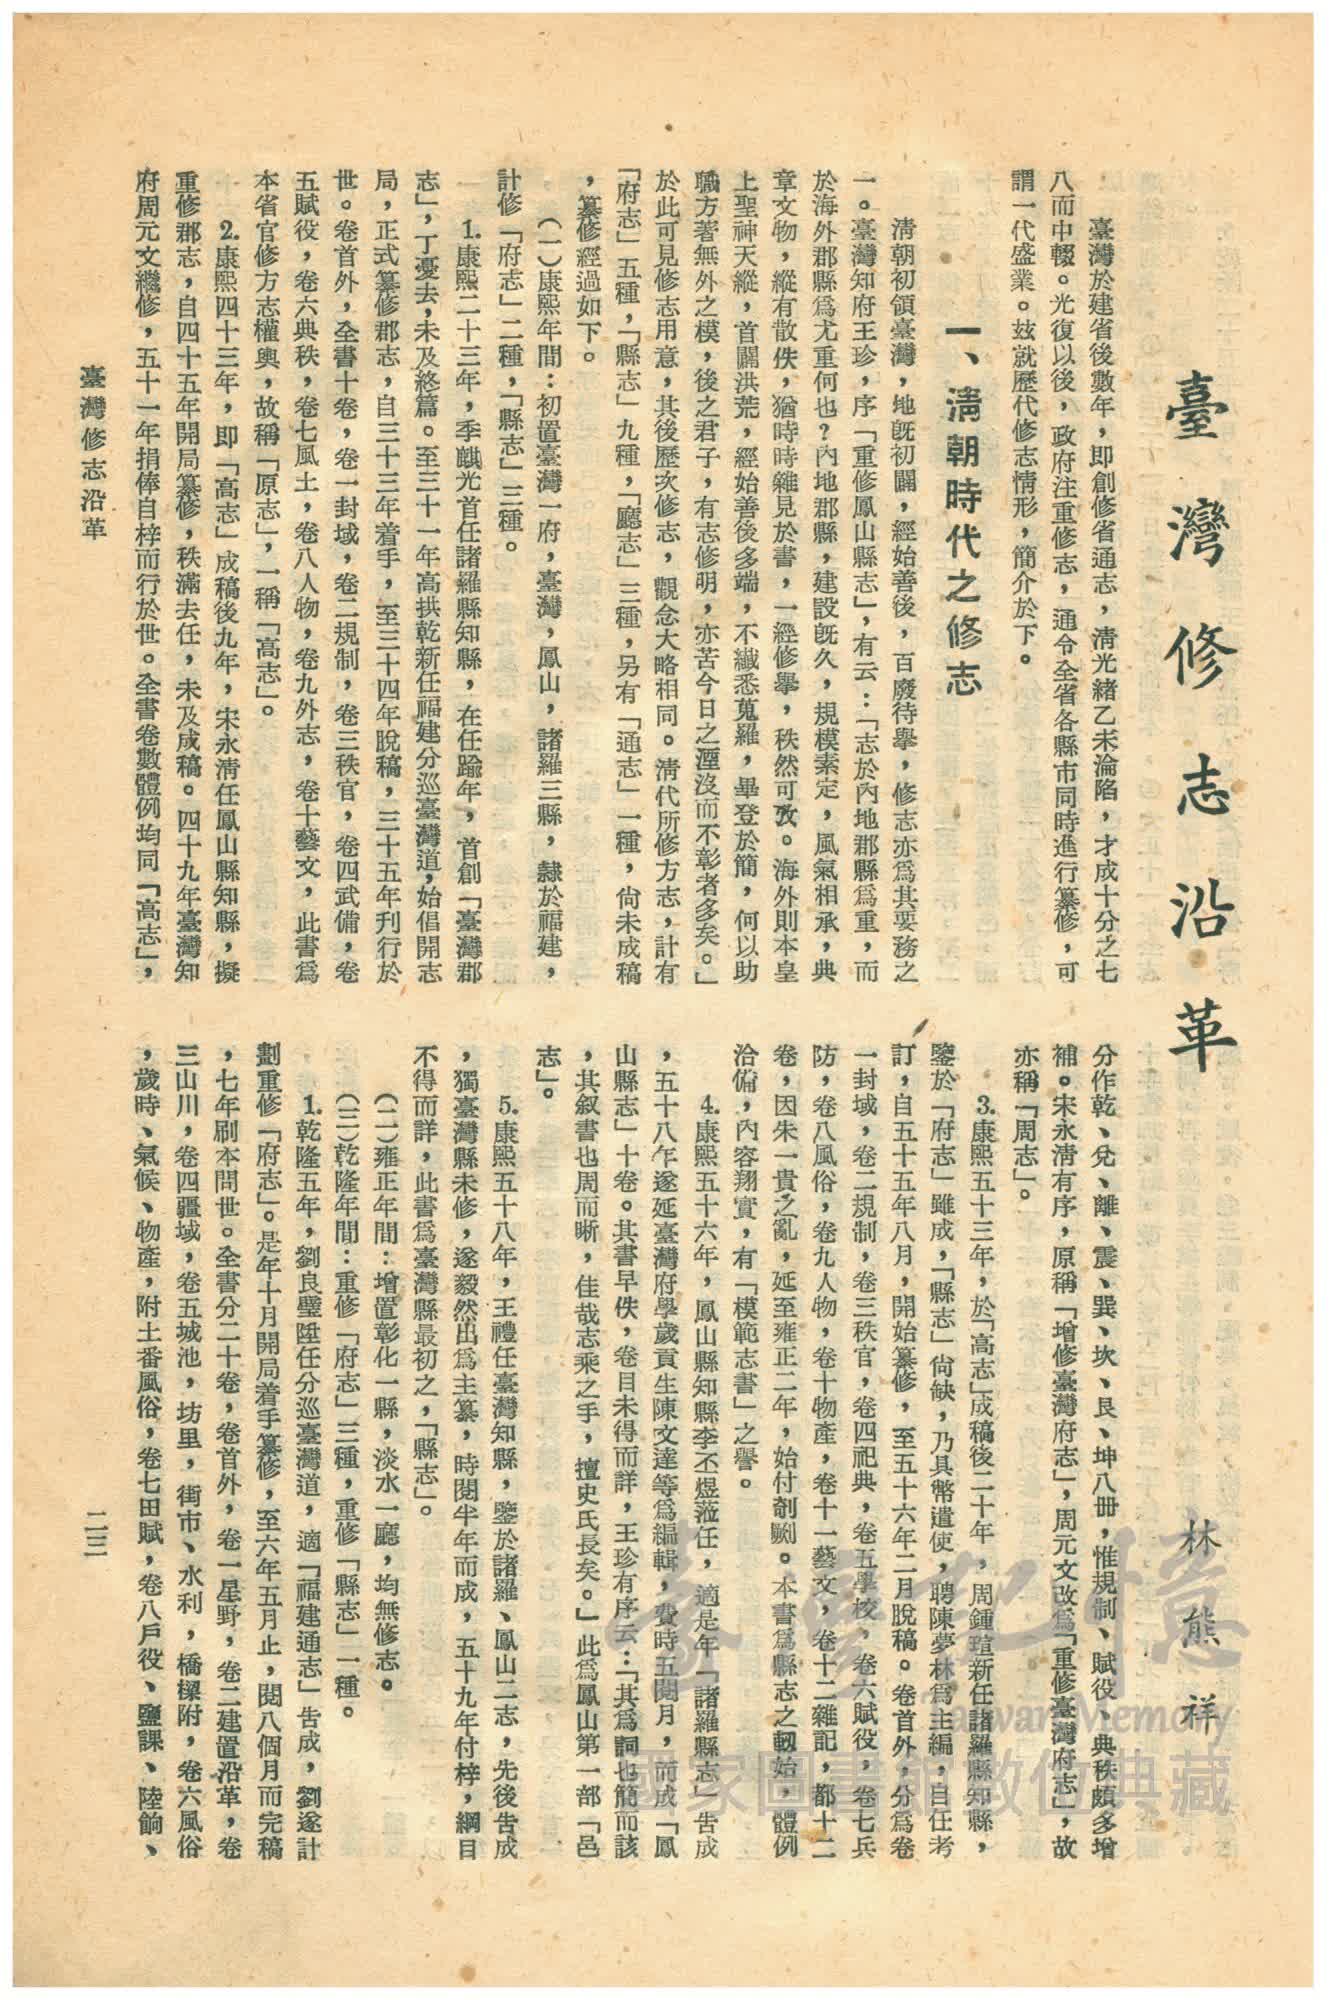 臺灣修志沿革
林熊祥
臺灣於建省後數年，即創修省通志，清光緒乙未淪陷，才成十分之七
八而中輟。光復以後，政府注重修志，通令全省各縣市同時進行纂修，可
謂一代盛業。玆就歷代修志情形，簡介於下。
一、淸朝時代之修志
淸朝初領臺灣，地旣初闢，經始善後，百廢待擧，修志亦爲其要務之
一。臺灣知府王珍，序「重修鳳山縣志」，有云：「志於內地郡縣爲重，而
於海外郡縣爲尤重何也？內地郡縣，建設旣久，規模素定，風氣相承，典
章文物，縱有散佚，猶時時雜見於書，一經修擧，秩然可攷。海外則本皇
上聖神天縱，首闢洪荒，經始善後多端，不纖悉蒐羅，畢登於簡，何以助
職方著無外之模，後之君子，有志修明，亦苦今日之湮沒而不彰者多矣。」
於此可見修志用意，其後歷次修志，觀念大略相同。淸代所修方志，計有
「府志」五種，「縣志」九種，「廳志」三種，另有「通志」一種，尙未成稿
，纂修經過如下。
（一）康熙年間：初置臺灣一府，臺灣，鳳山，諸羅三縣，隸於福建，
計修「府志」二種，「縣志」三種。
1.康熙二十三年，季麒光首任諸羅縣知縣，在任踰年，首創「臺灣郡
志」，丁憂去，未及終篇。至三十一年高拱乾新任福建分巡臺灣道，始倡開志
局，正式纂修郡志，自三十三年着手，至三十四年脫稿，三十五年刊行於
世。卷首外，全書十卷，卷一封域，卷二規制，卷三秩官，卷四武備，卷
五賦役，卷六典秩，卷七風土，卷八人物，卷九外志，卷十藝文，此書爲
本省官修方志權輿，故稱「原志」，一稱「高志」。
2.康熙四十三年，即「高志」成稿後九年，宋永淸任鳳山縣知縣，擬
重修郡志，自四十五年開局纂修，秩滿去任，未及成稿。四十九年臺灣知
府周元文繼修，五十一年捐俸自梓而行於世。全書卷數體例均同「高志」，
分作乾、兌、離、震、巽、坎、艮、坤八冊，惟規制、賦役、典秩頗多增
補。宋永淸有序，原稱「增修臺灣府志」，周元文改爲「重修臺灣府志」，故
亦稱「周志」。
3.康熙五十三年，於「高志」成稿後二十年，周鍾瑄新任諸羅縣知縣，
鑒於「府志」雖成，「縣志」尙缺，乃具幣遣使，聘陳夢林爲主編，自任考
訂，自五十五年八月，開始纂修，至五十六年二月脫稿。卷首外，分爲卷
一封域，卷二規制，卷三秩官，卷四祀典，卷五學校，卷六賦役，卷七兵
防，卷八風俗，卷九人物，卷十物產，卷十一藝文，卷十二雜記，都十二
卷，因朱一貴之亂，延至雍正二年，始付剞劂。本書爲縣志之𠛆始，體例
洽備，內容翔實，有「模範志書」之譽。
4.康熙五十六年，鳳山縣知縣李丕煜蒞任，適是年「諸羅縣志」告成
，五十八年遂延臺灣府學歲貢生陳文達等爲編輯，費時五閱月，而成「鳳
山縣志」十卷。其書早佚，卷目未得而詳，王珍有序云：「其爲詞也簡而該
，其叙書也周而晰，佳哉志乘之手，擅史氏長矣。」此爲鳳山第一部「邑
志」。
5.康熙五十八年，王禮任臺灣知縣，鑒於諸羅、鳳山二志，先後告成
，獨臺灣縣未修，遂毅然出爲主纂，時閱半年而成，五十九年付梓，綱目
不得而詳，此書爲臺灣縣最初之，「縣志」。
（二）雍正年間：增置彰化一縣，淡水一廳，均無修志。
（三）乾隆年間：重修「府志」三種，重修「縣志」二種。
1.乾隆五年，劉良璧陞任分巡臺灣道，適「福建通志」告成，劉遂計
劃重修「府志」。是年十月開局着手纂修，至六年五月止，閱八個月而完稿
，七年刷本問世。全書分二十卷，卷首外，卷一星野，卷二建置沿革，卷
三山川，卷四疆域，卷五城池，坊里，街市、水利，橋樑附，卷六風俗
，歲時、氣候、物產，附土番風俗，卷七田賦，卷八戶役、鹽課、陸餉、
臺灣修志沿革
二三
臺灣記憶
Taiwan Memory
國家圖書館數位典藏